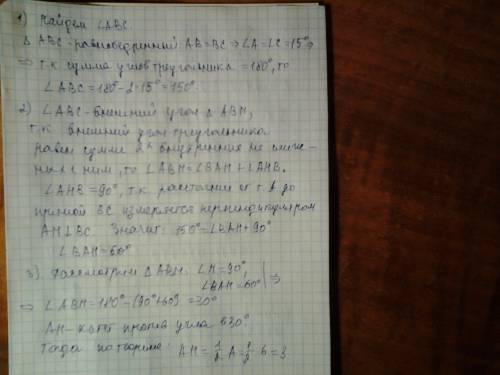 1) Найдем ∠ABC.
Δ ABC - равнобедренный AB=BC ⇒ ∠A=∠C=15° ⇒
⇒ т.к сумма углов треугольника = 180°, то
∠ABC = 180° - 2·15° = 150°.
2) ∠ABC - внешний угол Δ ABH,
т.к внешний угол треугольника
равен сумме 2х внутренних не смеж-
ных с ним, то ∠ABH = ∠BAH + ∠AHB.
∠AHB = 90°, т.к. расстояние от т.А до
прямой BC измеряется перпендикуляром
AH⊥BC. Значит: 150° = ∠BAH + 90°
∠BAH = 60°
3) Рассмотрим ΔABH. ∠H = 90°,
∠BAH = 60° ⇒
⇒ ∠ABH = 180° - (90°+60°) = 30°
AH - катет против угла в 30°
Тогда по теореме: AH = 1/2 A = 1/2 6. = 3